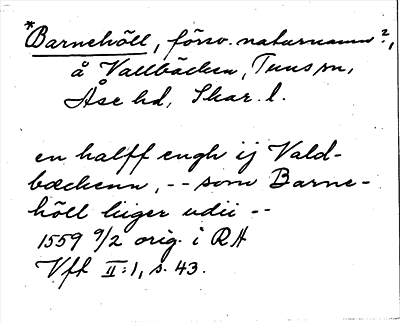 *Barnehöll, försv. naturnamn?,
å Vallbäcken, Tuns sn,
Åse hd, Skar. l.
en halff engh ij Vald-
bæckenn, -- som Barne-
höll liiger udii --
1559 9/2 orig. i RA
Vft II:1, s. 43.